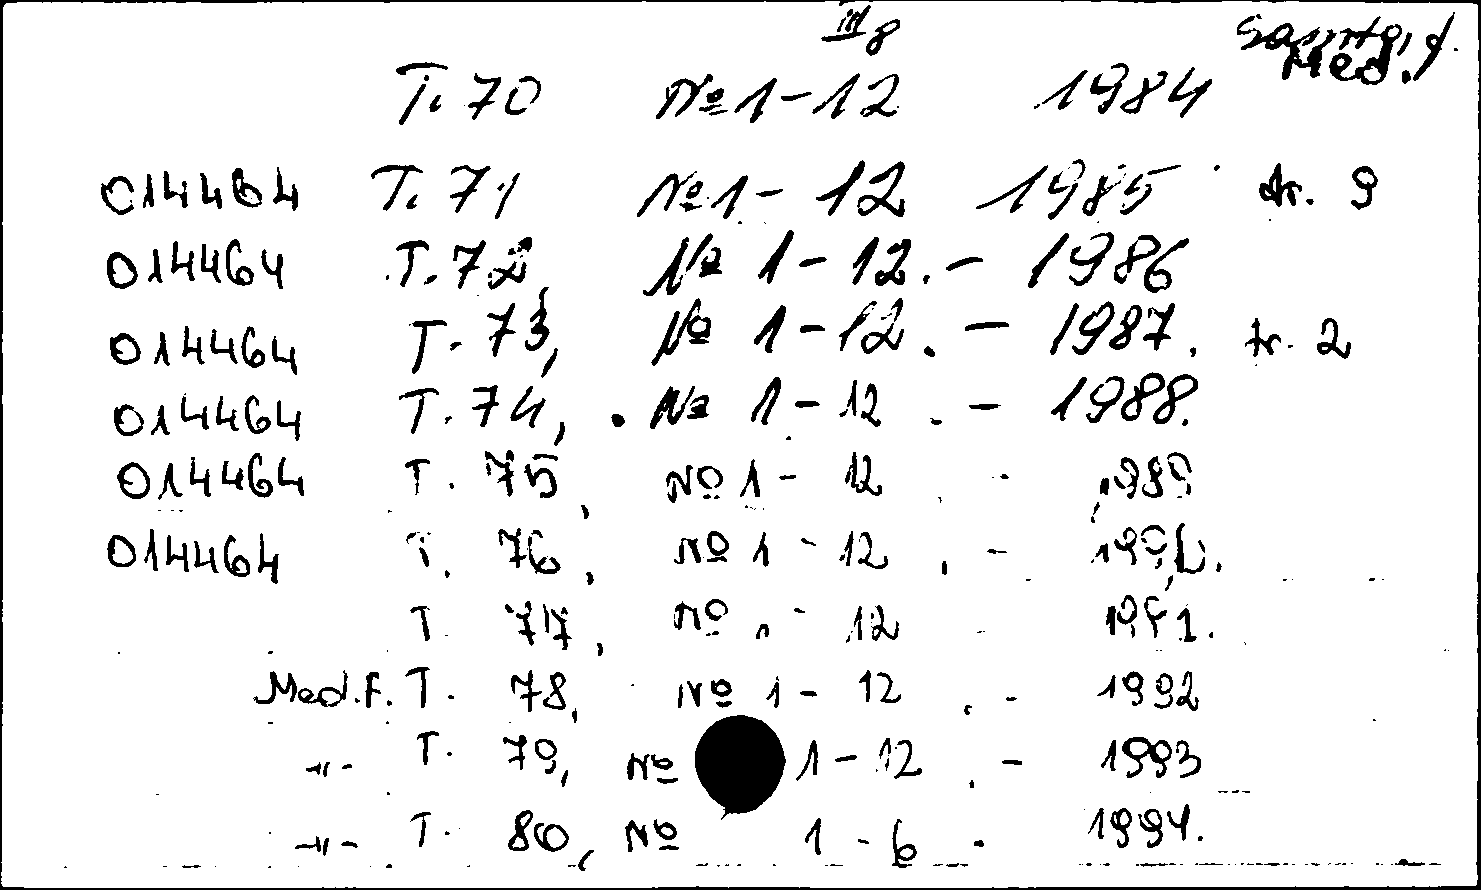 III 8
Med.
T. 70 № 1-12 1984
014464 T. 71 № 1-12 1985 tr. 9
014464 T. 72, № 1-12. - 1986
014464 T. 73, № 1-12. - 1987. tr. 2
014464 T. 74, № 1-12. - 1988.
014464 T. 75, № 1-12. - 1989
014464 T. 76, № 1-12. - 1990.
T. 77, № 1-12 - 1991.
Med.f. T. 78, № 1-12. - 1992
-"- T. 79, № 1-12. - 1993
-"- T. 80, № 1-6. 1994.